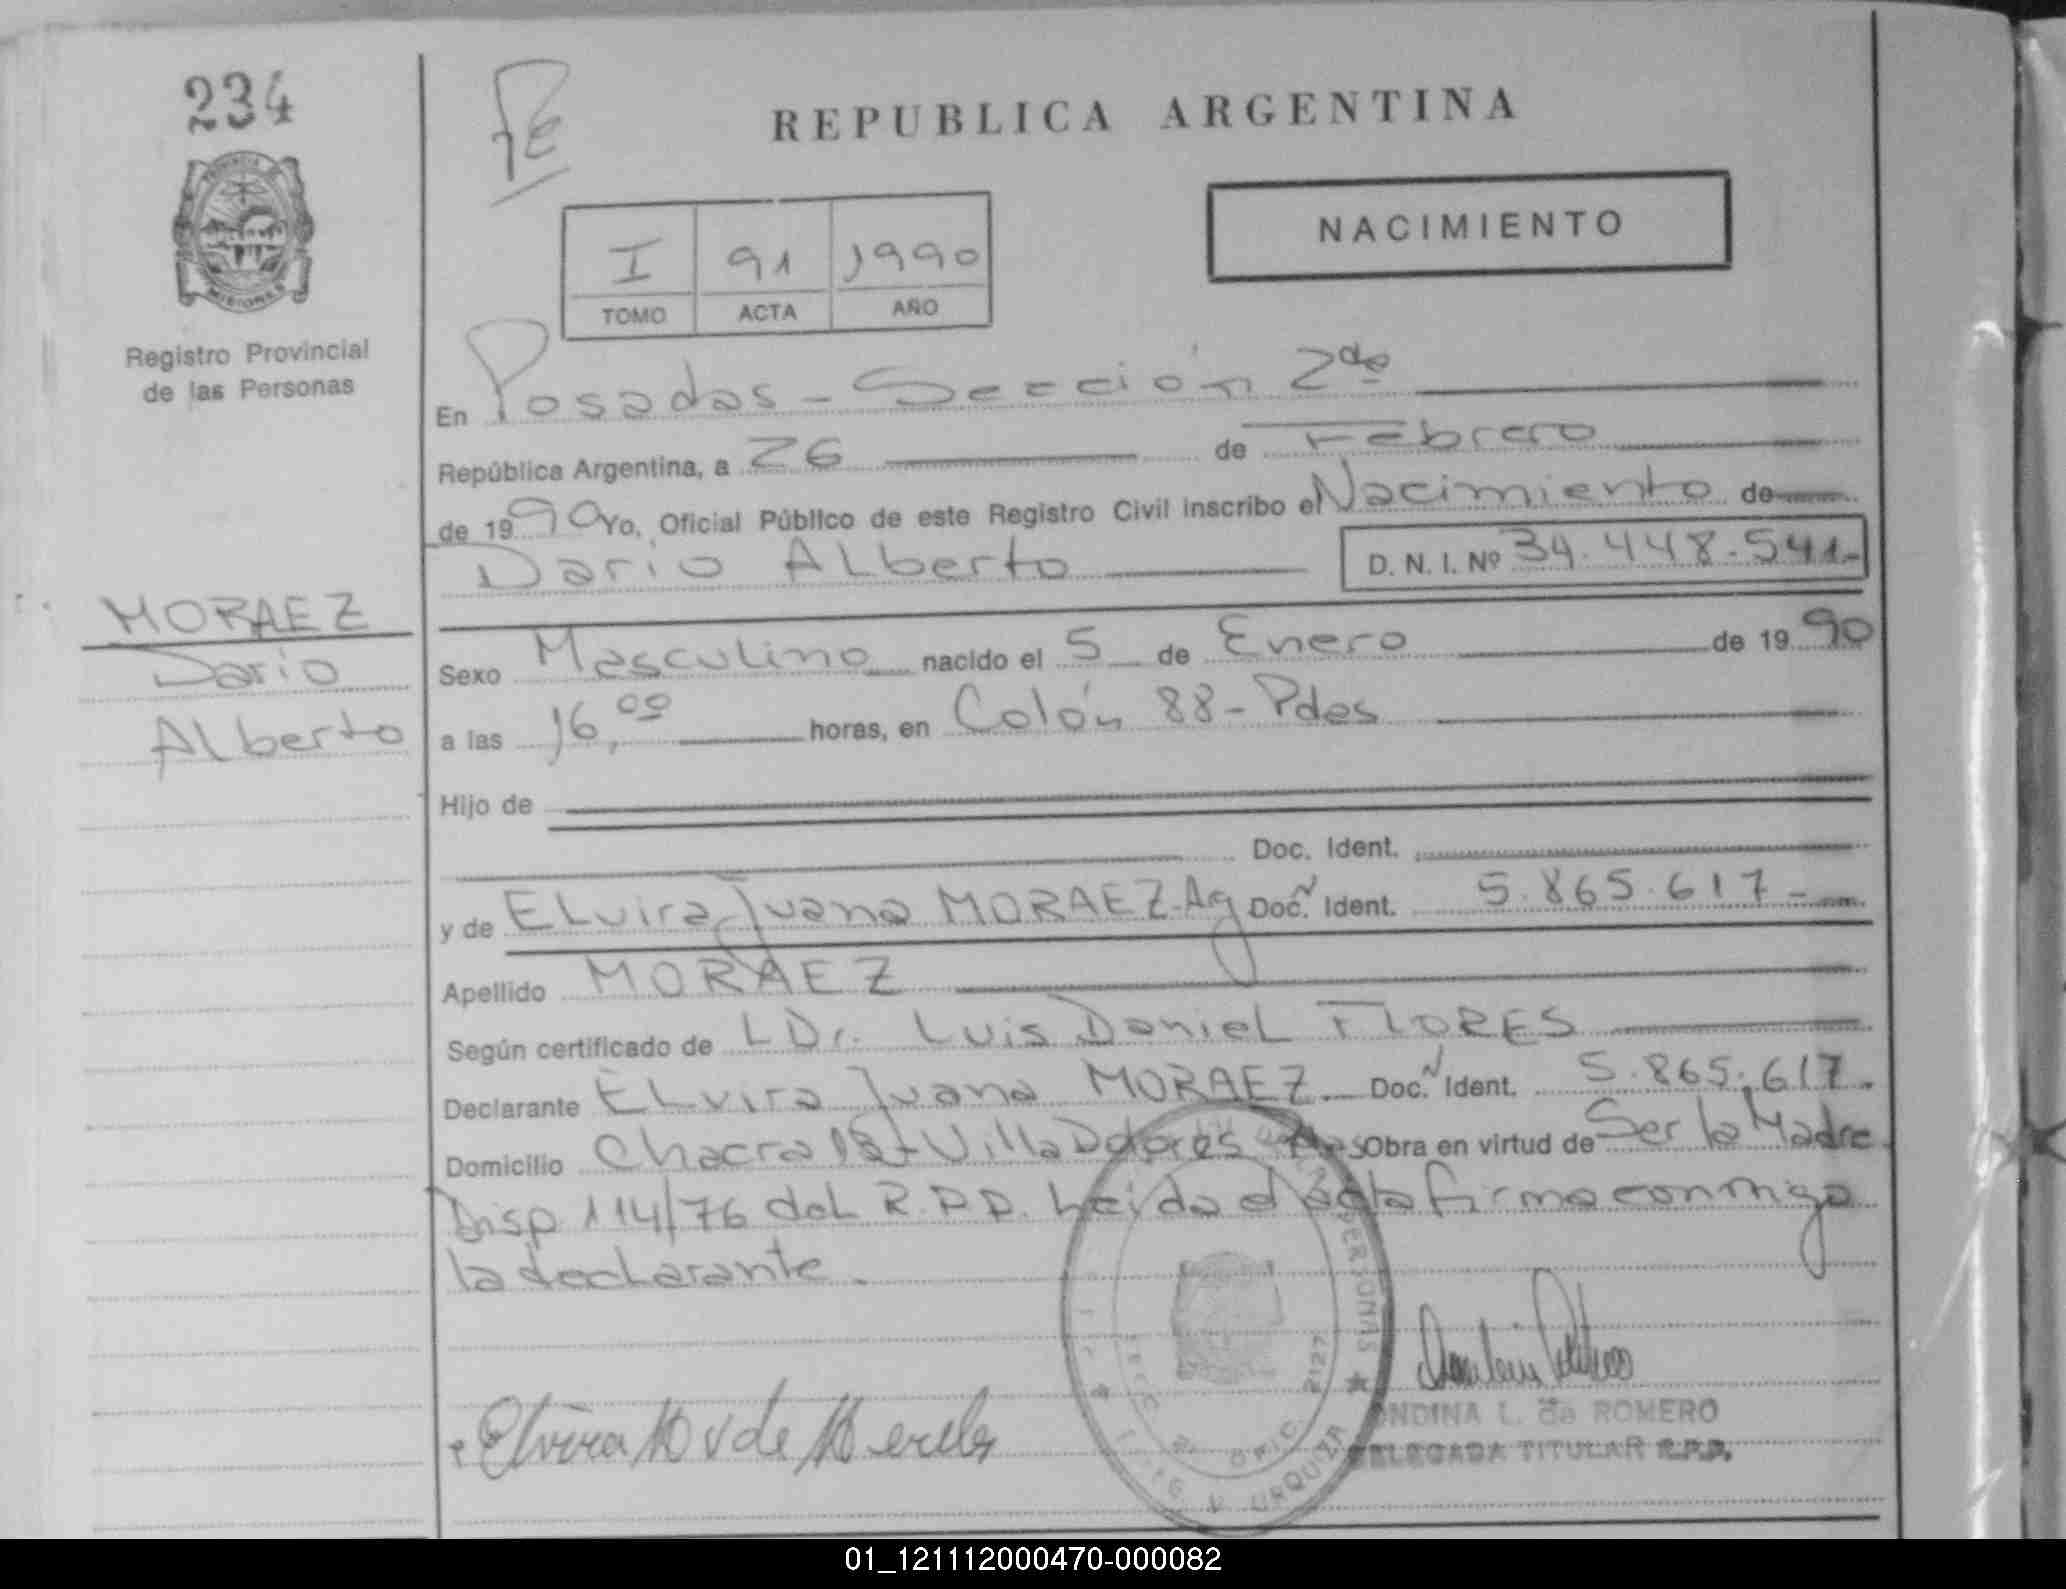 234
FE
REPUBLICA ARGENTINA
NACIMIENTO
I 91 1990
TOMO ACTA AÑO
PROVINCIA DE
MISIONES
Registro Provincial
de las Personas
En Posadas - Sección 2da
República Argentina, a 26 de Febrero
de 1990 Yo, Oficial Público de este Registro Civil inscribo el Nacimiento de
Dario Alberto D. N. I. Nº 34.448.541-
MORAEZ
Dario
Alberto
Sexo Masculino nacido el 5 de Enero de 1990
a las 16,00 horas, en Colón 88 - Pdas
Hijo de
Doc. Ident.
y de Elvira Juana MORAEZ-Arg Doc. Ident. 5.865.617-
Apellido MORAEZ
Según certificado de L Dr. Luis Daniel FLORES
Declarante Elvira Juana MORAEZ Doc. Ident. 5.865.617.
Domicilio Chacra Villa Dolores Pdas Obra en virtud de Ser la Madre
Disp 114/76 del R.P.P. Leída el acta firma conmigo
la declarante.
PERSONAS
2127
OFIC.
URQUIZA
Elvira M v de Mereles
ONDINA L. de ROMERO
DELEGADA TITULAR R.P.P.
01_121112000470-000082